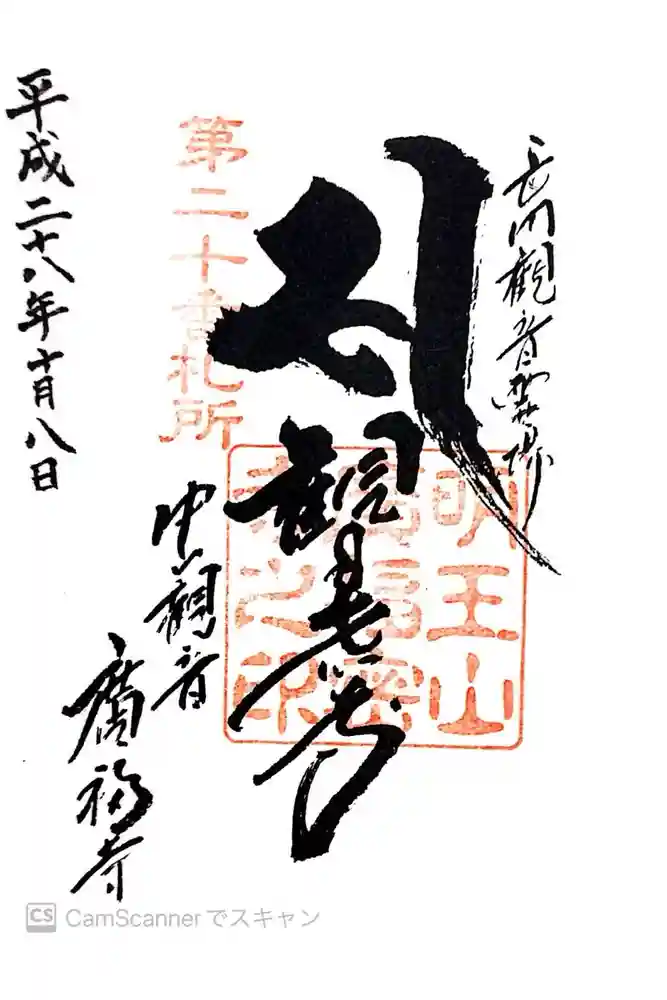 観音霊場
観世音
第二十番札所
明王山
廣福密
寺之印
中観音
廣福寺
平成二十八年十月八日
CS CamScannerでスキャン